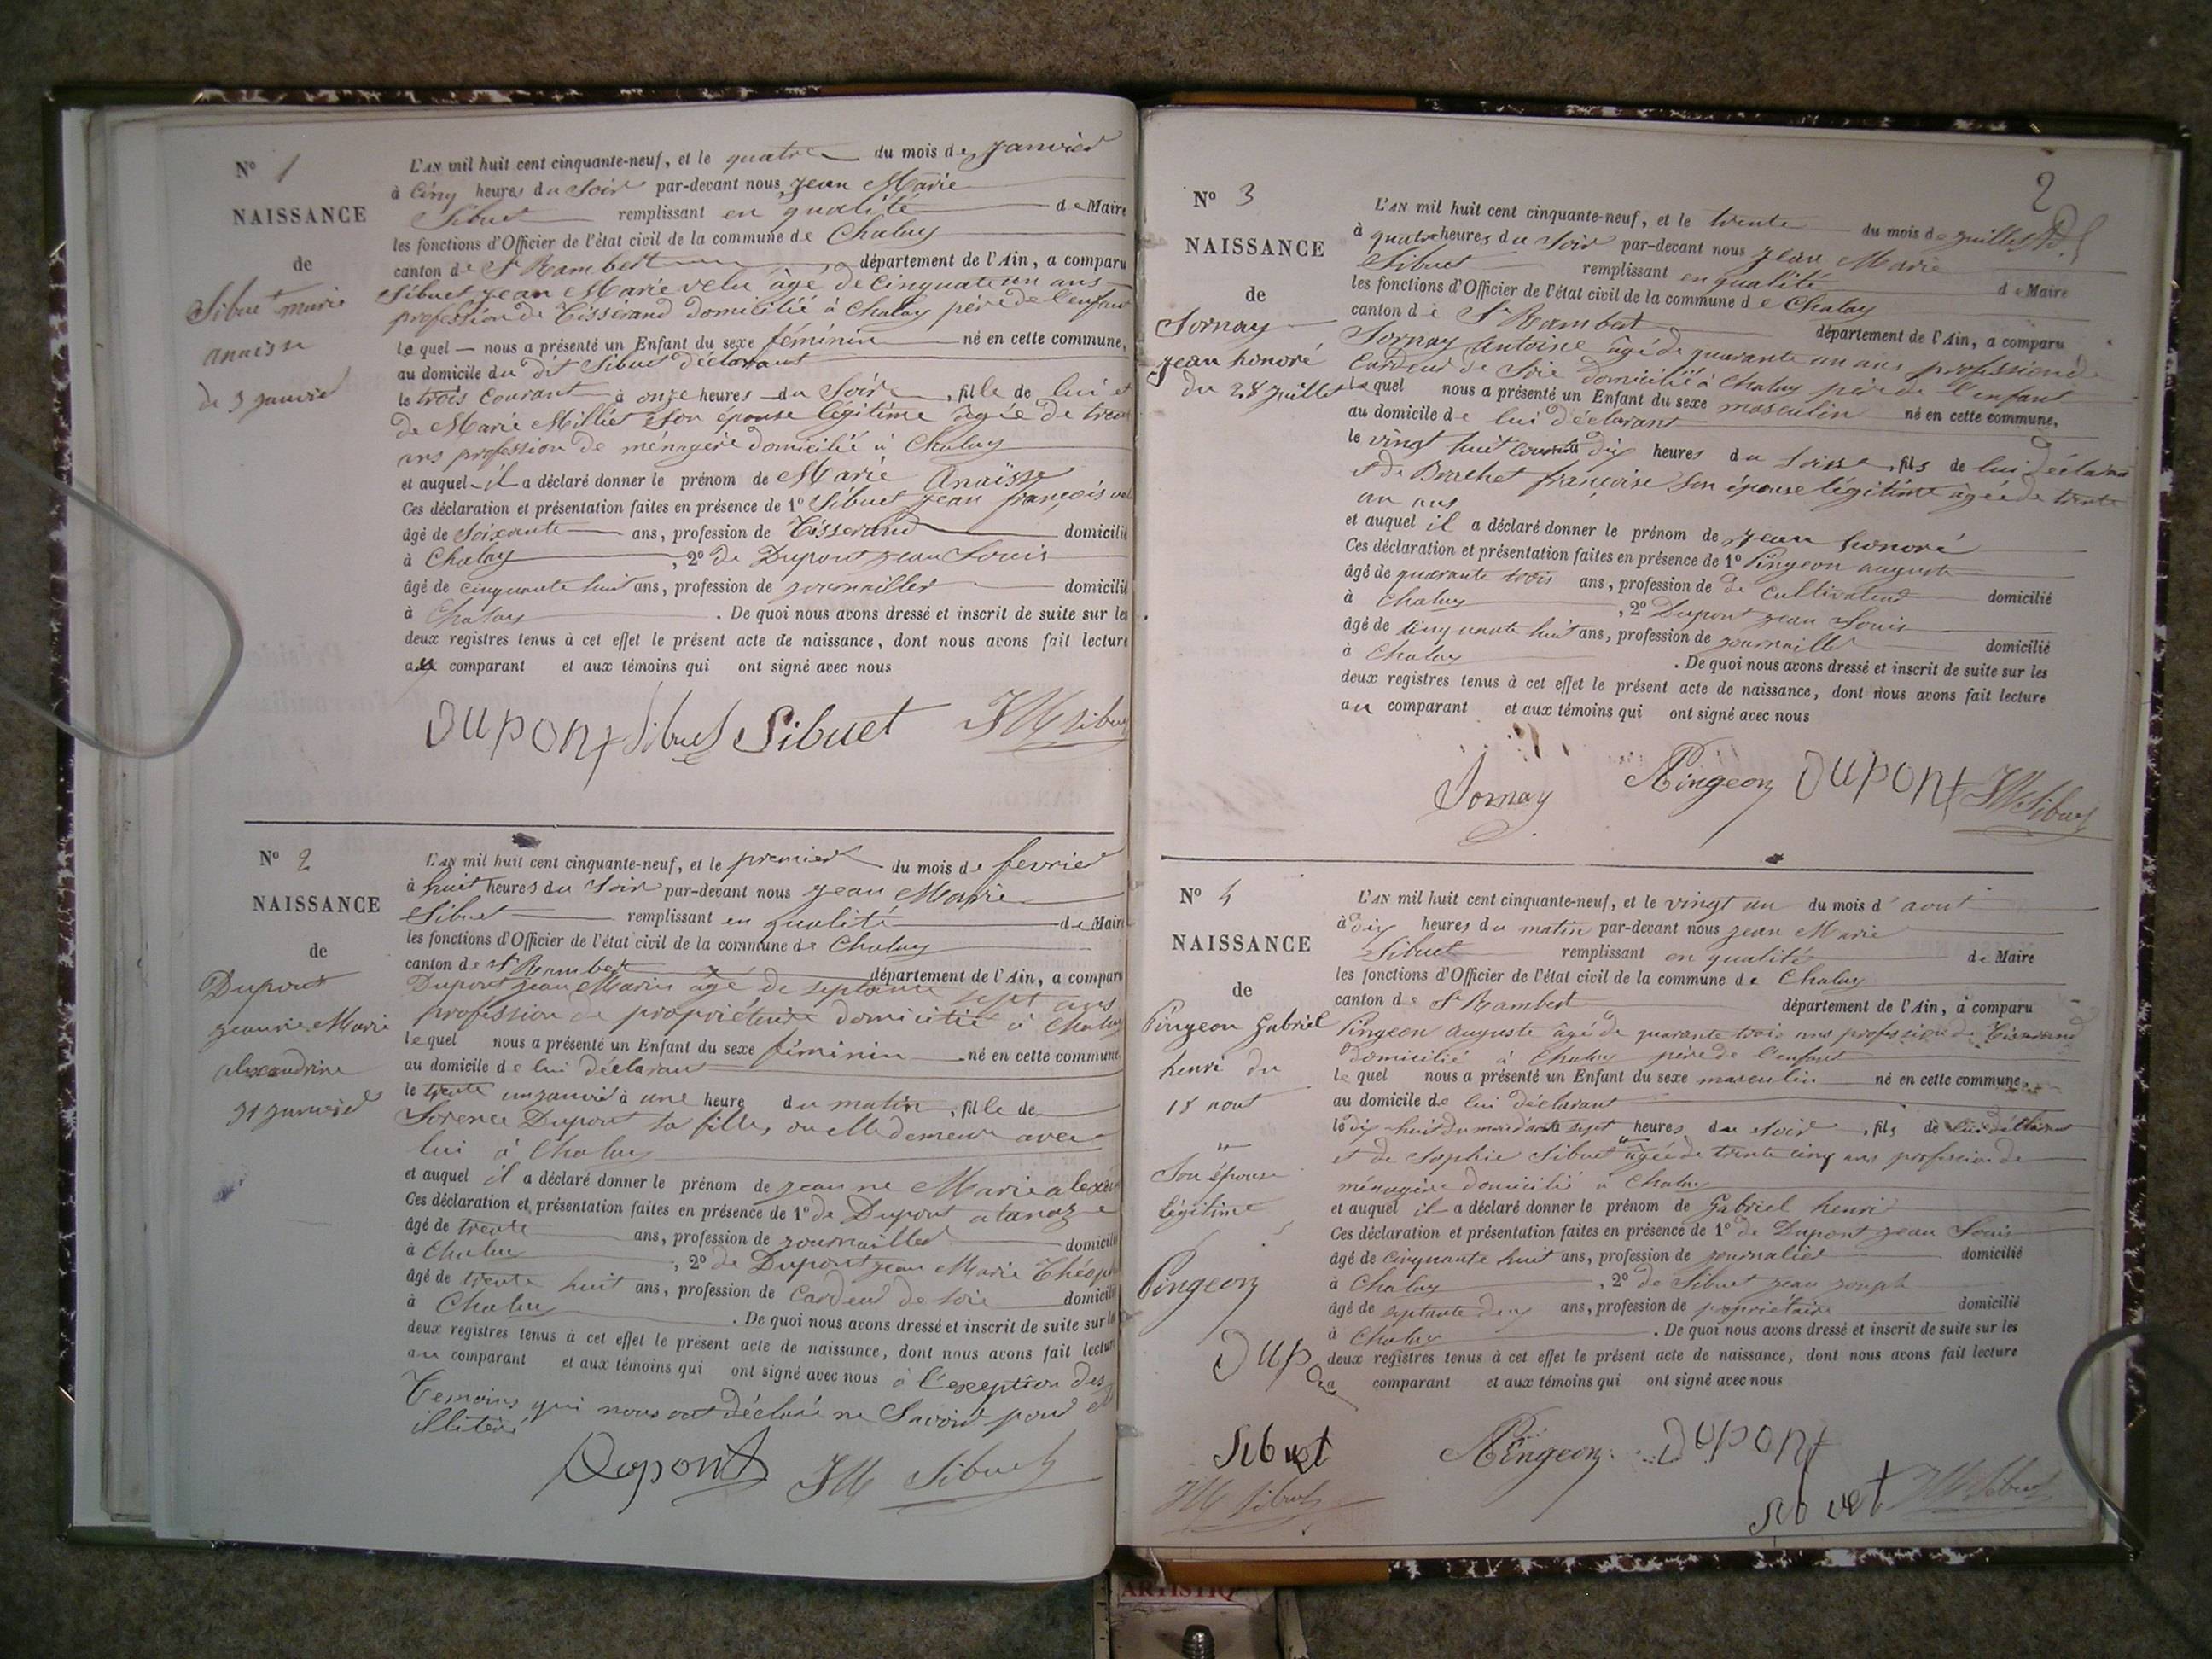 N° 1
NAISSANCE
de
Sibuet marie
anaisse
du 3 janvier
L'AN mil huit cent cinquante-neuf, et le quatre du mois de janvier
à cinq heures du soir par-devant nous jean Marie
Sibuet remplissant en qualité de Maire
les fonctions d'Officier de l'état civil de la commune de Chaley
canton de St Rambert département de l'Ain, a comparu
Sibuet jean Marie velu âgé de cinquante un ans
profession de tisserand domicilié à Chaley père de l'enfant
lequel nous a présenté un Enfant du sexe féminin né en cette commune,
au domicile du dit Sibuet déclarant
le trois courant à onze heures du soir, fille de lui et
de Marie Milliet son épouse légitime âgée de
ans profession de ménagère domicilié à Chaley
et auquel il a déclaré donner le prénom de Marie Anaïsse
Ces déclaration et présentation faites en présence de 1° Sibuet jean françois
âgé de soixante ans, profession de tisserand domicilié
à Chaley, 2° de Dupont jean Louis
âgé de cinquante huit ans, profession de journallier domicilié
à Chaley. De quoi nous avons dressé et inscrit de suite sur les
deux registres tenus à cet effet le présent acte de naissance, dont nous avons fait lecture
au comparant et aux témoins qui ont signé avec nous
DUPONT Sibuet Sibuet JM Sibuet
N° 2
NAISSANCE
de
Dupont
jeanne Marie
alexandrine
31 janvier
L'AN mil huit cent cinquante-neuf, et le premier du mois de fevrier
à huit heures du soir par-devant nous jean Marie
Sibuet remplissant en qualité de Maire
les fonctions d'Officier de l'état civil de la commune de Chaley
canton de St Rambert département de l'Ain, a comparu
Dupont jean Marie âgé de septante sept ans
profession de propriétaire domicilié à Chaley
lequel nous a présenté un Enfant du sexe féminin né en cette commune,
au domicile de lui déclarant
le trente un janvier à une heure du matin, fille de
Dupont sa fille, ou elle demeure avec
lui à Chaley
et auquel il a déclaré donner le prénom de jeanne Marie
Ces déclaration et présentation faites en présence de 1° de Dupont atanaze
âgé de trente ans, profession de journallier domicilié
à Chaley, 2° de Dupont jean Marie
âgé de trente huit ans, profession de Cardeur de soie domicilié
à Chaley. De quoi nous avons dressé et inscrit de suite sur les
deux registres tenus à cet effet le présent acte de naissance, dont nous avons fait lecture
au comparant et aux témoins qui ont signé avec nous à l'exception des
temoins qui nous ont déclaré ne savoir pour
Dupont JM Sibuet
2
N° 3
NAISSANCE
de
Sornay
jean honoré
du 28 juillet
L'AN mil huit cent cinquante-neuf, et le trente du mois de juillet
à quatre heures du soir par-devant nous jean Marie
Sibuet remplissant en qualité de Maire
les fonctions d'Officier de l'état civil de la commune de Chaley
canton de St Rambert département de l'Ain, a comparu
Sornay Antoine âgé de quarante un ans profession de
Cardeur de soie domicilié à Chaley père de l'enfant
lequel nous a présenté un Enfant du sexe masculin né en cette commune,
au domicile de lui déclarant
le vingt huit courant à dix heures du soir, fils de lui déclarant
et de Brachet françoise son épouse légitime âgée de trente
un ans
et auquel il a déclaré donner le prénom de jean honoré
Ces déclaration et présentation faites en présence de 1° Pingeon auguste
âgé de quarante trois ans, profession de de cultivateur domicilié
à Chaley, 2° Dupont jean Louis
âgé de cinquante huit ans, profession de journallier domicilié
à Chaley. De quoi nous avons dressé et inscrit de suite sur les
deux registres tenus à cet effet le présent acte de naissance, dont nous avons fait lecture
au comparant et aux témoins qui ont signé avec nous
Sornay Pingeon DUPONT JM Sibuet
N° 4
NAISSANCE
de
Pingeon Gabriel
henri du
18 aout
Son épouse
légitime
Pingeon
Dupont
Sibuet
JM Sibuet
L'AN mil huit cent cinquante-neuf, et le vingt un du mois d'aout
à dix heures du matin par-devant nous jean Marie
Sibuet remplissant en qualité de Maire
les fonctions d'Officier de l'état civil de la commune de Chaley
canton de St Rambert département de l'Ain, a comparu
Pingeon Auguste âgé de quarante trois ans profession de tisserand
domicilié à Chaley père de l'enfant
lequel nous a présenté un Enfant du sexe masculin né en cette commune,
au domicile de lui déclarant
le dix huit du mois d'aout à sept heures du soir, fils de lui déclarant
et de Sophie Sibuet âgée de trente cinq ans profession de
ménagère domicilié à Chaley
et auquel il a déclaré donner le prénom de Gabriel henri
Ces déclaration et présentation faites en présence de 1° de Dupont jean Louis
âgé de cinquante huit ans, profession de journalier domicilié
à Chaley, 2° de Sibuet jean joseph
âgé de septante deux ans, profession de propriétaire domicilié
à Chaley. De quoi nous avons dressé et inscrit de suite sur les
deux registres tenus à cet effet le présent acte de naissance, dont nous avons fait lecture
au comparant et aux témoins qui ont signé avec nous
Pingeon DUPONT
Sibuet JM Sibuet
ARTISTIQ